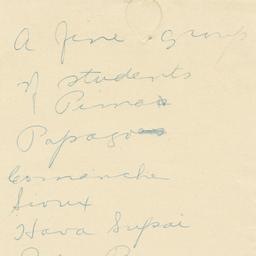 A fine group
of students
Pima
Papago
Comanche
Sioux
Hava Supai